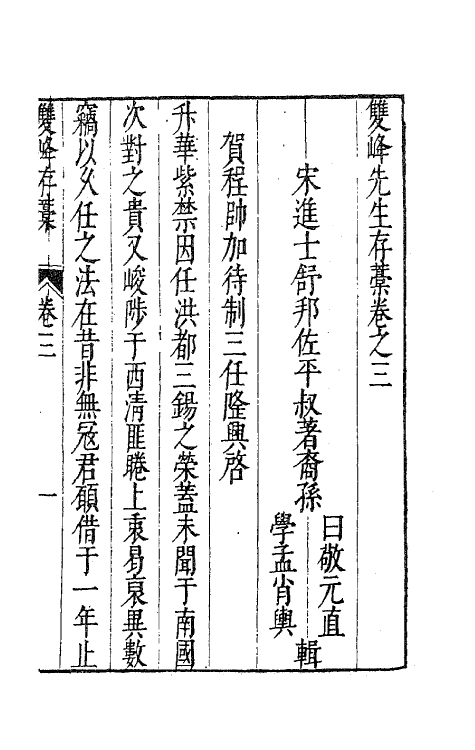 雙峰先生存藁卷之三
宋進士舒邦佐平叔著裔孫
曰敬元直
學孟肖輿
輯
賀程帥加待制三任隆興啓
升華紫禁因任洪都三錫之榮蓋未聞于南國
次對之貴又峻陟于西清匪睠上衷曷裒異數
竊以久任之法在昔非無寇君願借于一年止
雙峰存藁
卷三
一